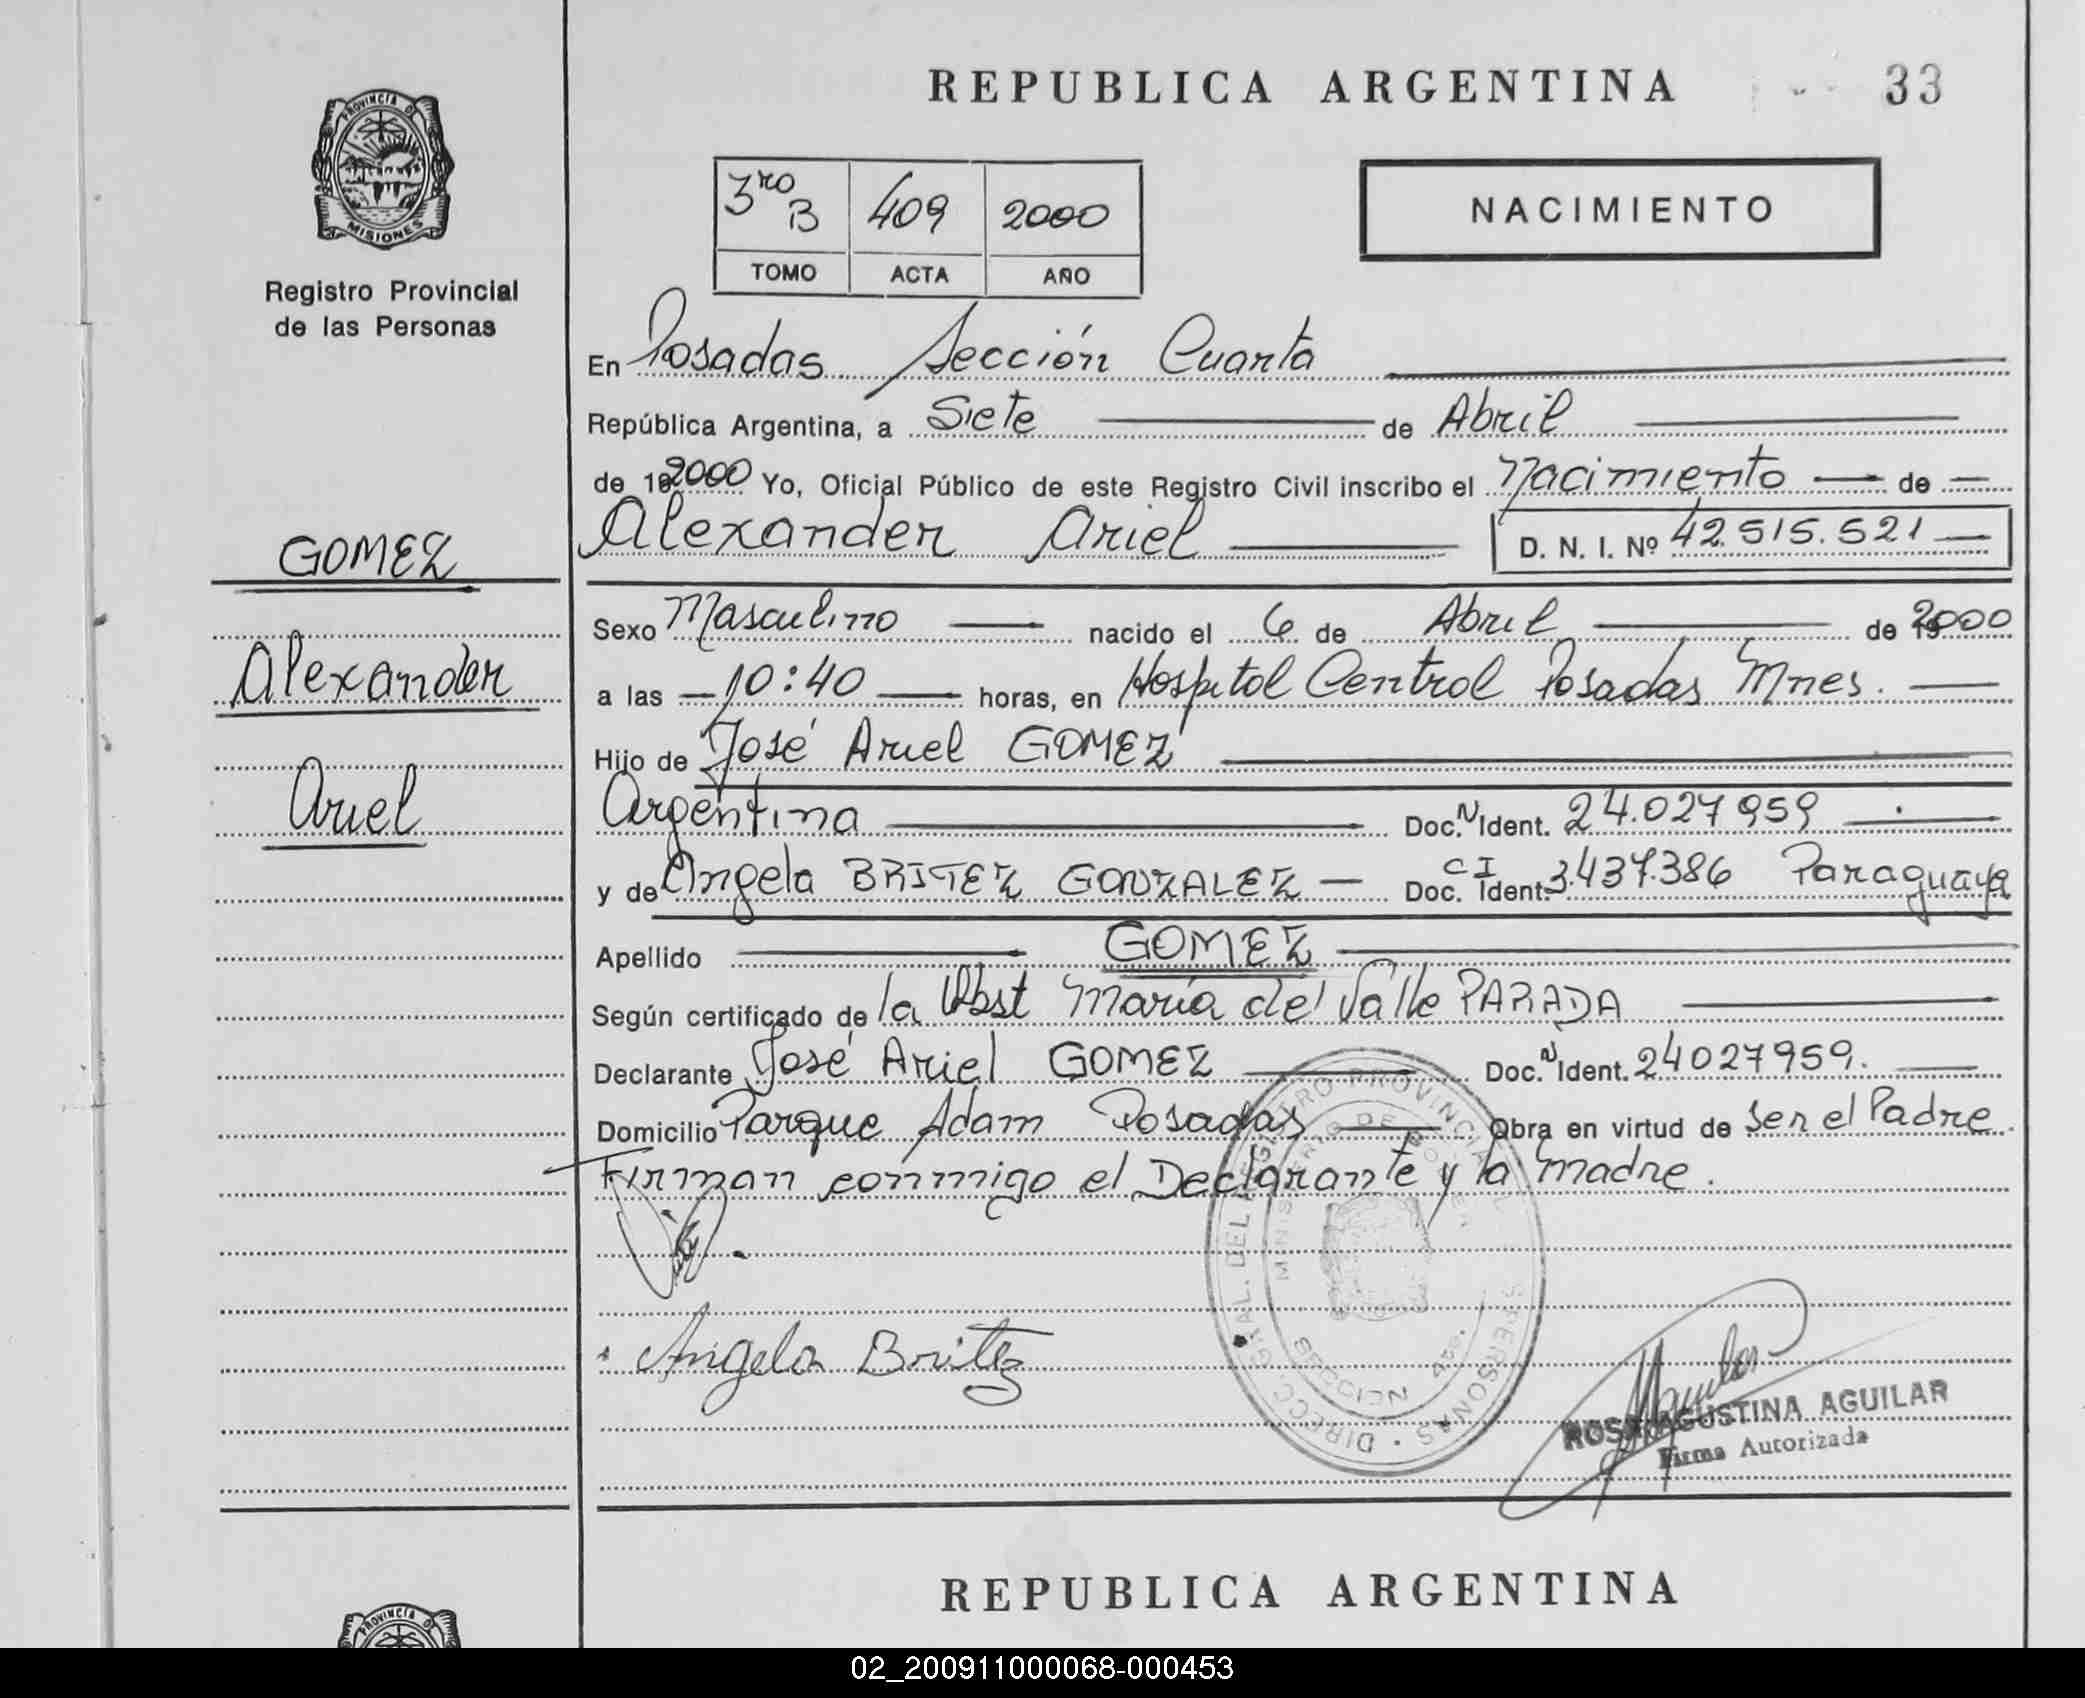 REPUBLICA ARGENTINA
33
PROVINCIA DE
MISIONES
Registro Provincial
de las Personas
3ro B 409 2000
TOMO ACTA AÑO
NACIMIENTO
En Posadas Sección Cuarta
República Argentina, a Siete de Abril
de 2000 Yo, Oficial Público de este Registro Civil inscribo el Nacimiento de
Alexander Ariel D. N. I. Nº 42.515.521
GOMEZ
Alexander
Ariel
Sexo Masculino nacido el 6 de Abril de 2000
a las 10:40 horas, en Hospital Central Posadas Mnes.
Hijo de José Ariel GOMEZ
Argentina Doc. N Ident. 24.027959
y de Angela BRITEZ GONZALEZ Doc. CI Ident. 3.437.386 Paraguaya
Apellido GOMEZ
Según certificado de la Obst María del Valle PARADA
Declarante José Ariel GOMEZ Doc. N Ident. 24027959.
Domicilio Parque Adam Posadas Obra en virtud de Ser el Padre
Firman conmigo el Declarante y la madre.
Angela Britez
DIRECC. GRAL. DEL REGISTRO PROVINCIAL PERSONAS
MINISTERIO DE GOB
ROSA AGUSTINA AGUILAR
Firma Autorizada
REPUBLICA ARGENTINA
PROVINCIA DE
02_200911000068-000453